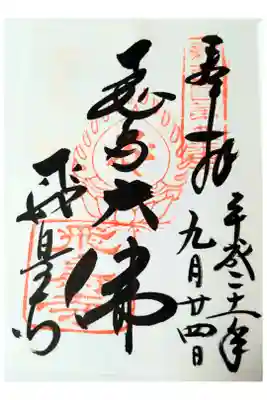 奉拝
平成二十一年
九月廿四日
飛鳥大佛
飛鳥寺